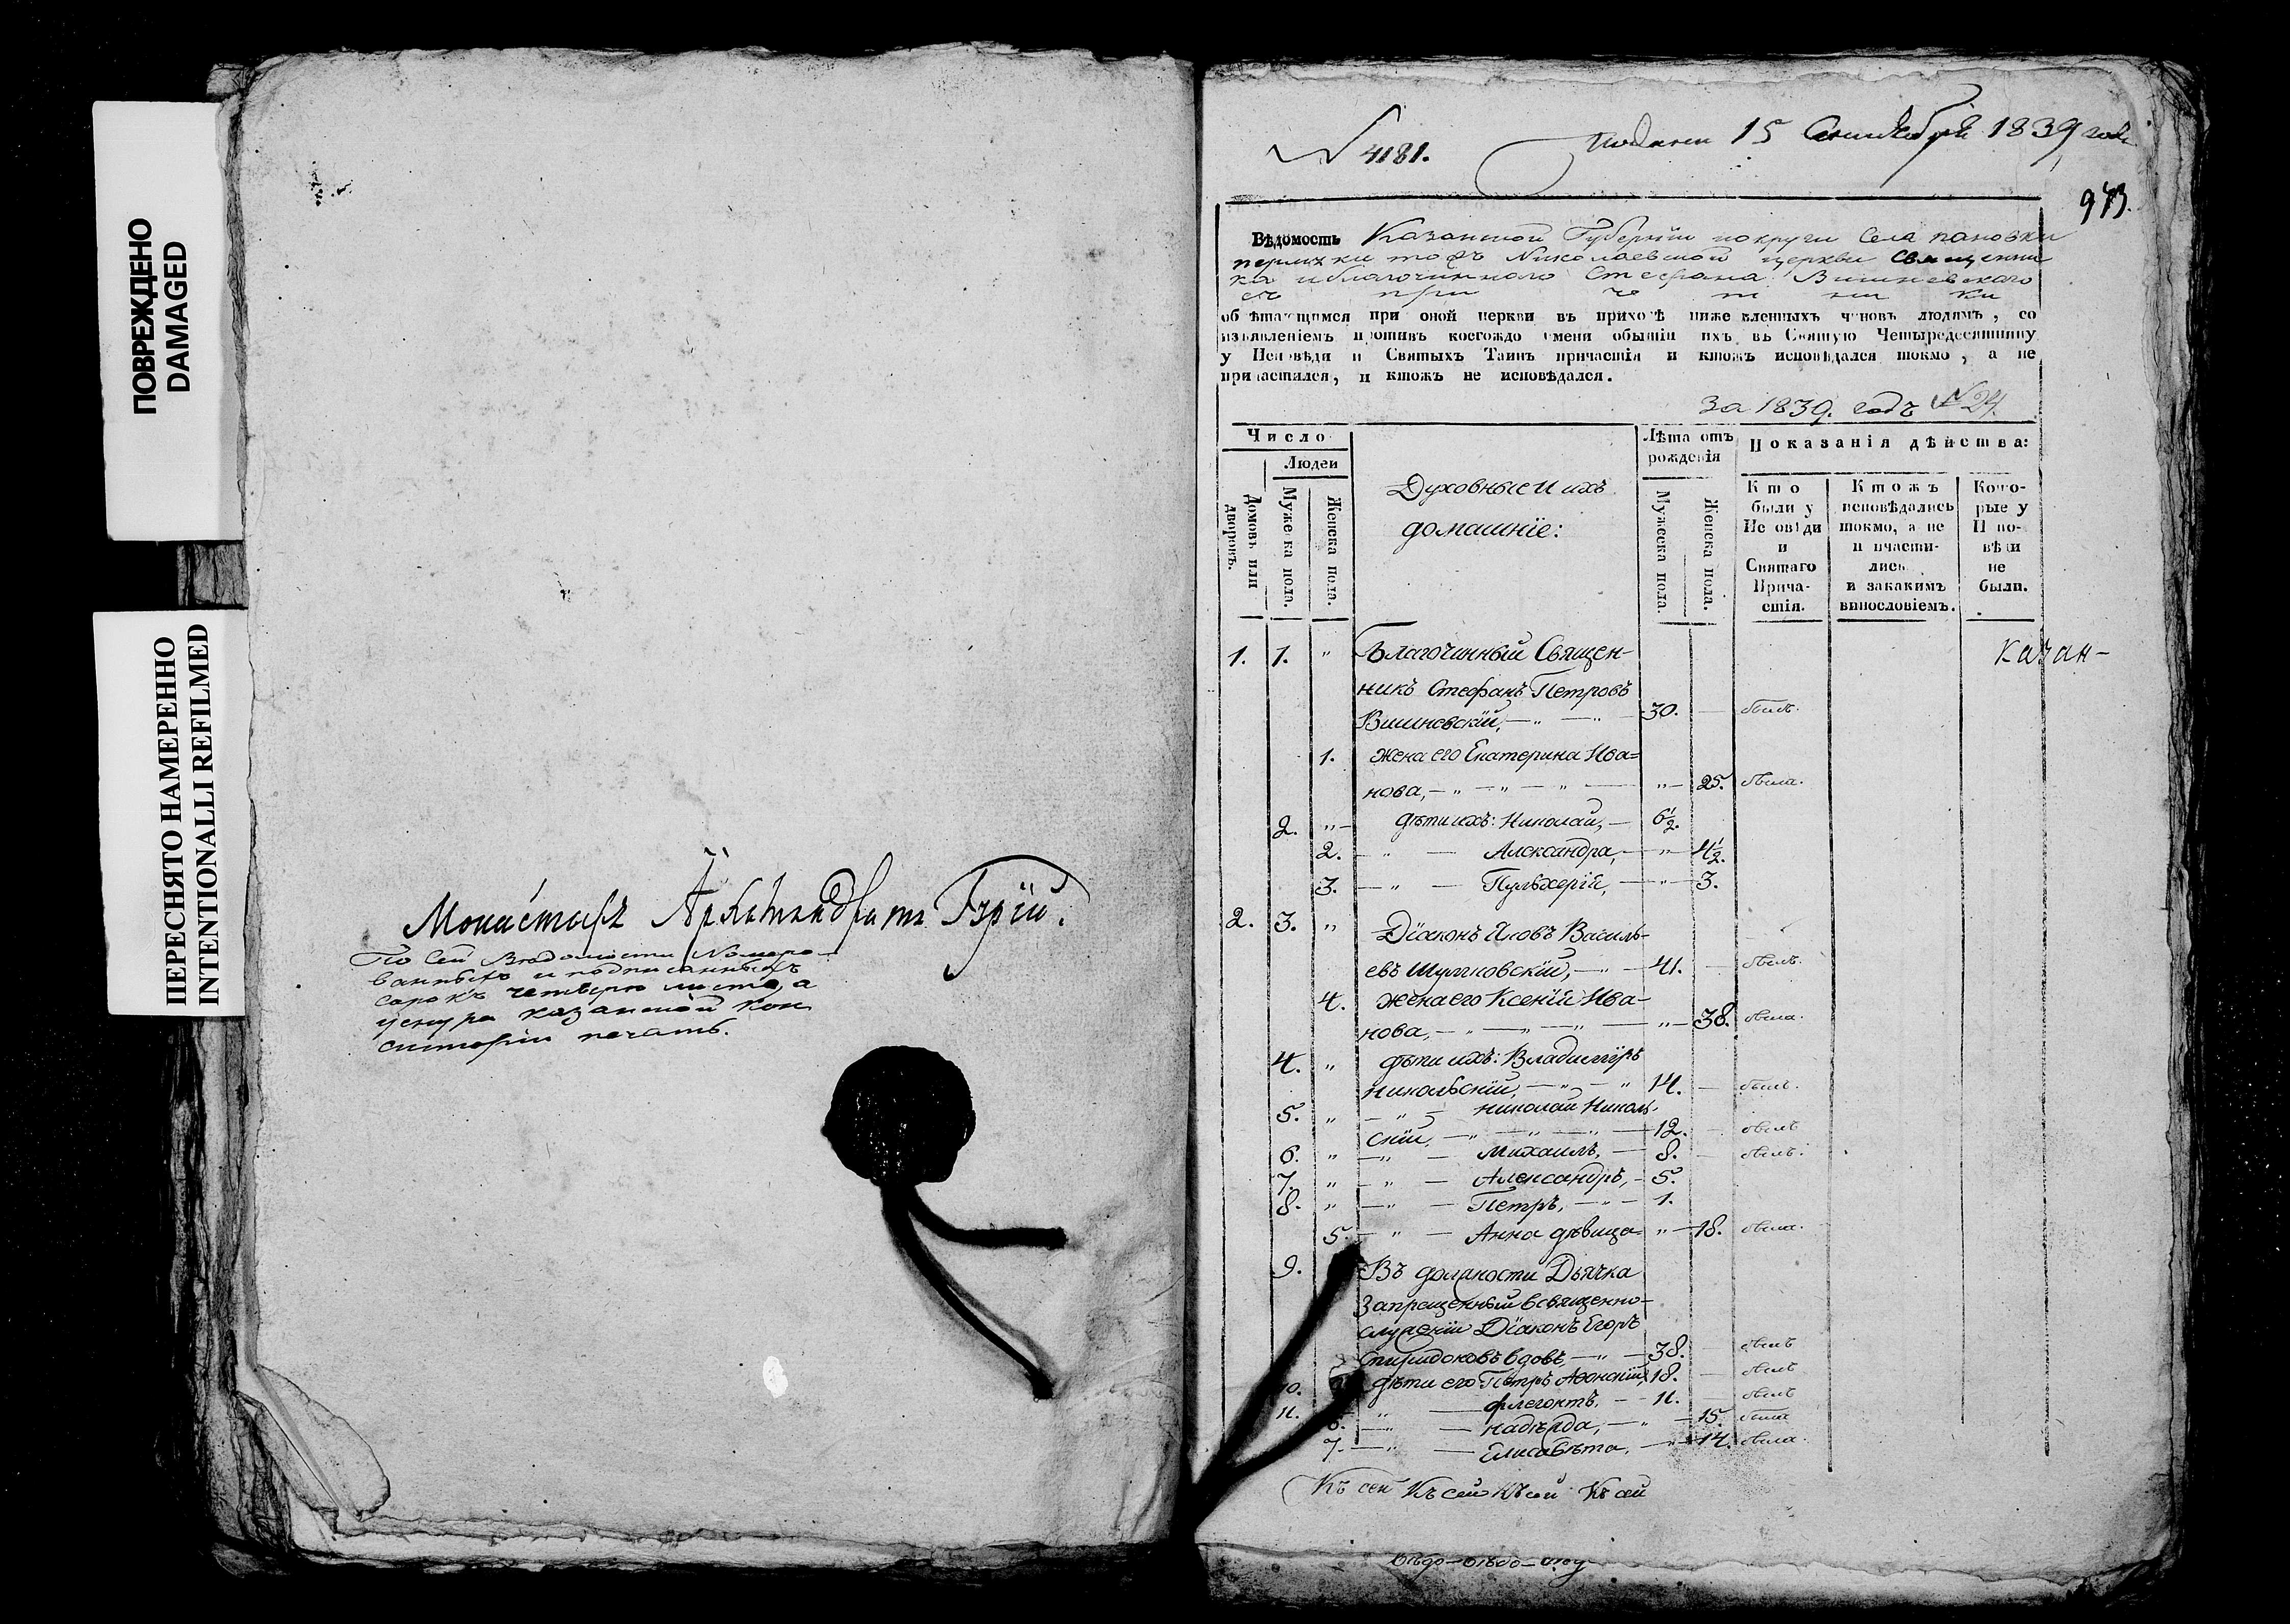 ПОВРЕЖДЕНО
DAMAGED
ПЕРЕСНЯТО НАМЕРЕННО
INTENTIONALLI REFILMED
Монастыръ Архимандритъ Гурій.
По сей Ведомости Номеро-
ванныхъ и подписанныхъ
сорокъ четыре листа, а
Казанской Кон
систоріи печать.
N 4181.
подана 15 Сентября 1839 года
973.
Вѣдомость Казанской Губерніи округи Села пановки
тожъ Николаевской церкви Священни
ка и благочиннаго Стефана Вишневскаго
съ при че тни ки
обрѣтающимся при оной церкви въ приходѣ нижеявленныхъ чиновъ людямъ, со
изъявленіемъ противъ коегождо имени бытіи ихъ въ Святую Четыредесятницу
у Исповѣди и Святыхъ Таинъ причастія и ктожъ исповѣдался токмо, а не
причастился, и ктожъ не исповѣдался.
за 1839. годъ N 24.
Число
Людей
Домовъ или дворовъ.
Мужеска пола.
Женска пола.
Духовные и ихъ
домашніе:
Лѣта отъ
рожденія
Мужеска пола.
Женска пола.
Показанія дѣйства:
Кто
были у
Исповѣди
и
Святаго
Прича-
стія.
Ктожъ
исповѣдались
токмо, а не
причасти-
лись
и закакимъ
винословіемъ.
Кото-
рые у
Испо-
вѣди
не
были.
1. 1. " Благочинный Священ-
Казан-
никъ Стефанъ Петровъ
Вишневскій, 30. былъ
1. жена его Екатерина Ива=
нова, 25. была.
2. " дѣти ихъ: Николай, 6½.
2. Александра, 4½.
3. Пульхерія, 3.
2. 3. " Діаконъ Яковъ Василь-
евъ Шумковскій, 41. былъ.
4. жена его Ксенія Ива-
нова, 38. была.
4. " дѣти ихъ: Владиміръ
Никольскій, 14. былъ.
5. " Николай Николь-
скій, 12. былъ
6. " Михаилъ, 8. былъ.
7. " Александръ, 5.
8. " Петръ, 1.
5. Анна дѣвица 18. была.
9. Въ должности Дьячка
Запрещенный всвященно-
служеніи Діаконъ Егоръ
Спиридоновъ вдовъ, 38. былъ
10. дѣти его Петръ Аѳонскій, 18. былъ
11. Флегонтъ, 11. былъ
6. Надѣжда, 15. была
7. Елисавѣта, 14. была.
Къ сей Къ сей Къ сей Къ сей